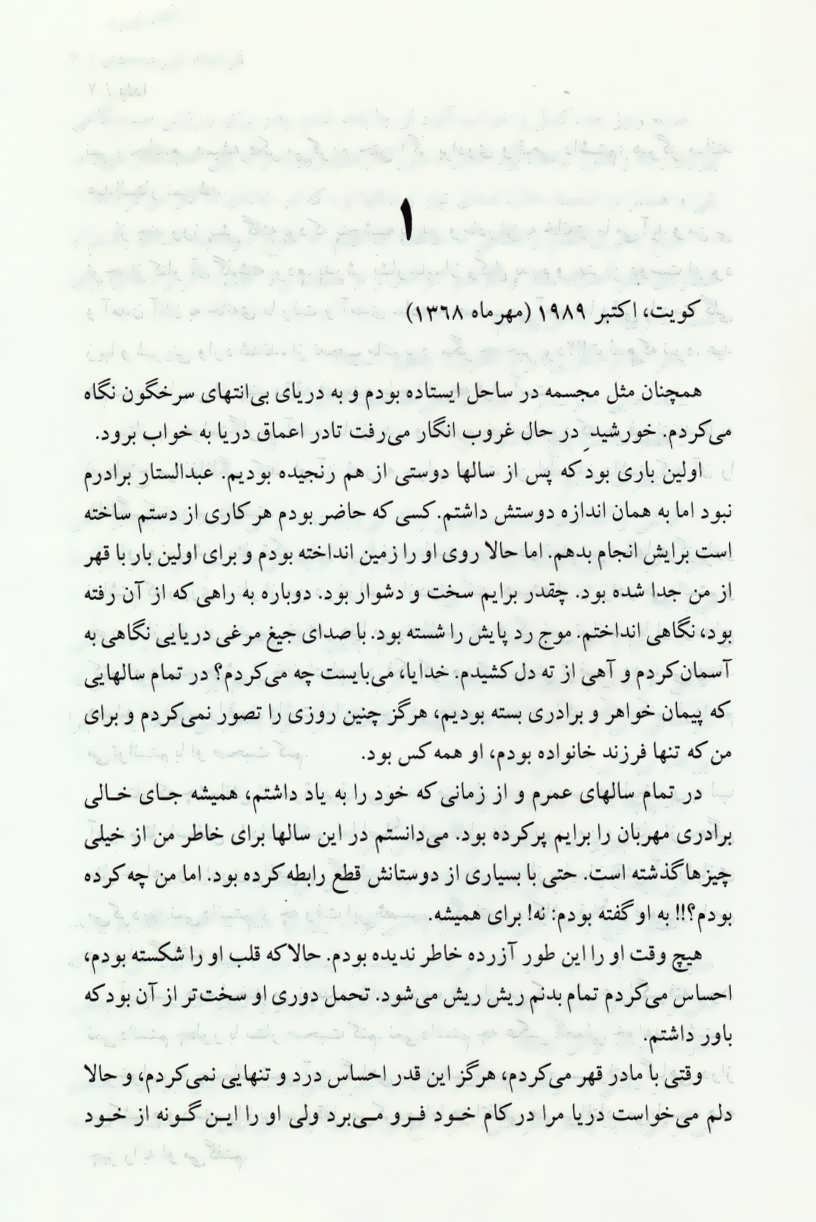 ۱
کویت، اکتبر ۱۹۸۹ (مهرماه ۱۳۶۸)
همچنان مثل مجسمه در ساحل ایستاده بودم و به دریای بی‌انتهای سرخگون نگاه
می‌کردم. خورشید در حال غروب انگار می‌رفت تادر اعماق دریا به خواب برود.
اولین باری بود که پس از سالها دوستی از هم رنجیده بودیم. عبدالستار برادرم
نبود اما به همان اندازه دوستش داشتم. کسی که حاضر بودم هر کاری از دستم ساخته
است برایش انجام بدهم. اما حالا روی او را زمین انداخته بودم و برای اولین بار با قهر
از من جدا شده بود. چقدر برایم سخت و دشوار بود. دوباره به راهی که از آن رفته
بود، نگاهی انداختم. موج رد پایش را شسته بود. با صدای جیغ مرغی دریایی نگاهی به
آسمان کردم و آهی از ته دل کشیدم. خدایا، می‌بایست چه می‌کردم؟ در تمام سالهایی
که پیمان خواهر و برادری بسته بودیم، هرگز چنین روزی را تصور نمی‌کردم و برای
من که تنها فرزند خانواده بودم، او همه کس بود.
در تمام سالهای عمرم و از زمانی که خود را به یاد داشتم، همیشه جای خالی
برادری مهربان را برایم پرکرده بود. می‌دانستم در این سالها برای خاطر من از خیلی
چیزها گذشته است. حتی با بسیاری از دوستانش قطع رابطه کرده بود. اما من چه کرده
بودم؟!! به او گفته بودم: نه! برای همیشه.
هیچ وقت او را این طور آزرده خاطر ندیده بودم. حالا که قلب او را شکسته بودم،
احساس می‌کردم تمام بدنم ریش ریش می‌شود. تحمل دوری او سخت‌تر از آن بود که
باور داشتم.
وقتی با مادر قهر می‌کردم، هرگز این قدر احساس درد و تنهایی نمی‌کردم، و حالا
دلم می‌خواست دریا مرا در کام خود فرو می‌برد ولی او را این گونه از خود